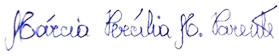 Márcia Percília M. Parente